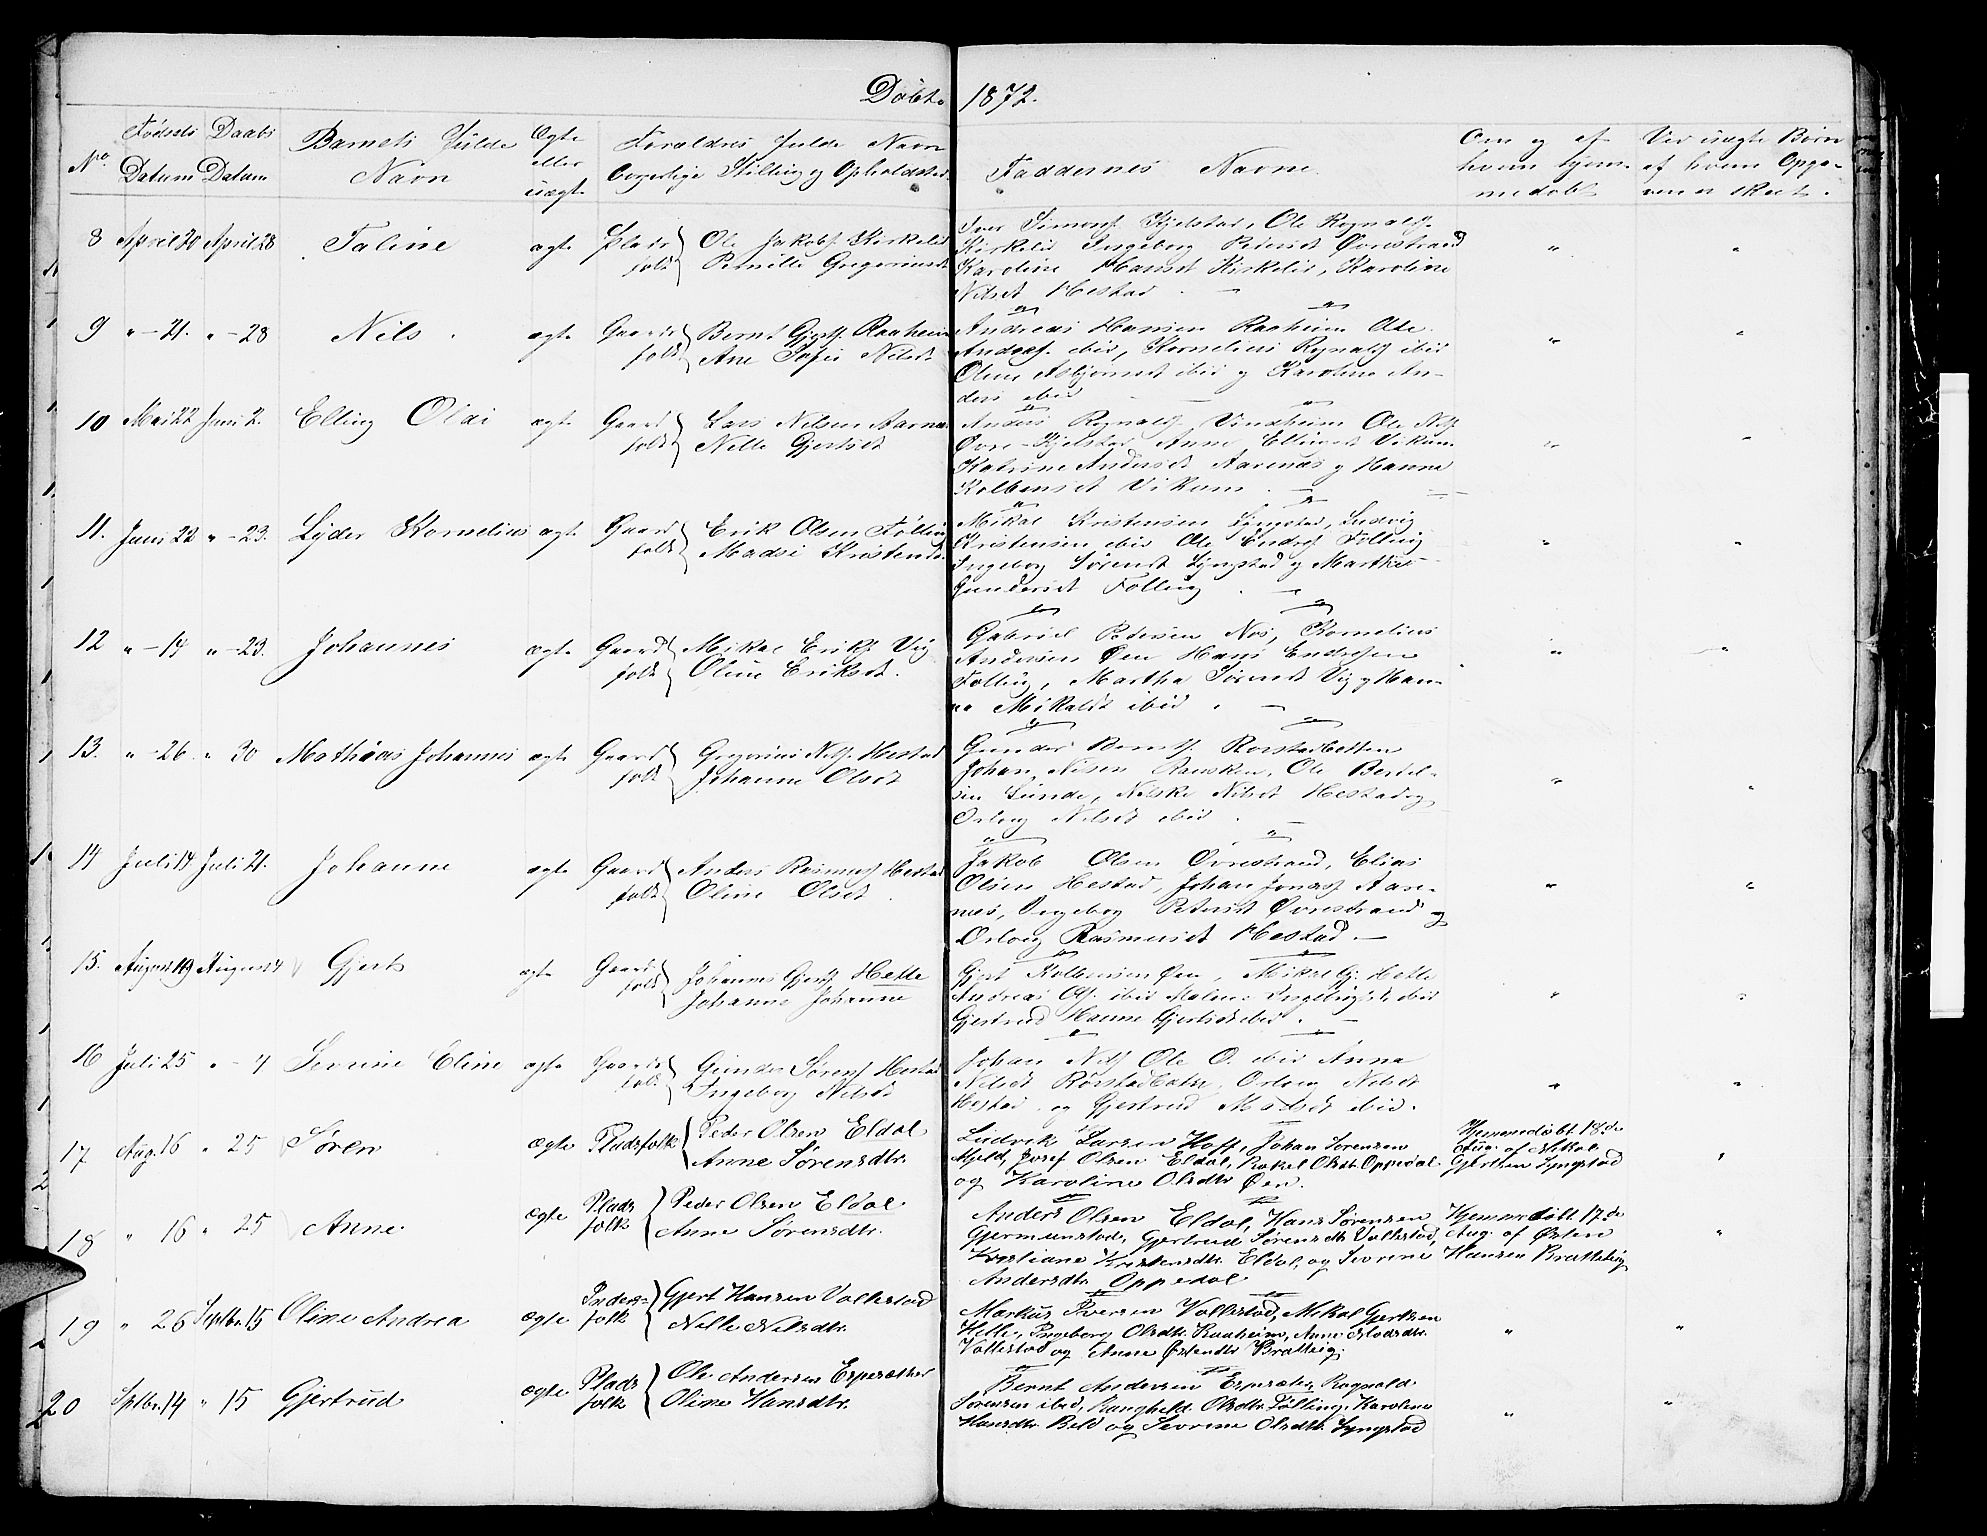 Døbte 1872.
No. Fødsels Datum Daabs Datum Barnets fulde Navn Ægte eller uægte Forældres fulde Navn Borgerlige Stilling og Opholdsted
Faddernes Navne. Om og af hvem hjemmedøbt Ved uægte Børn af hvem Opgaven er skeet.
8 April 20 April 28 Taline ægte Plads folk Ole Jakobs. Kirkelid
Pernille Gregoriusdt
Iver Simons. Kjelstad, Ole Rognalds.
Kirkelid Ingeborg Pedersdt Øvrestrand
Karoline Hansdt Kirkelid, Karoline
Nilsdt Hestad
9 " - 21. " - 28 Nils ægte Gaard folk Bernt Gjerts. Raaheim
Ane Sofie Nilsdt
Andreas Hansen Raaheim Ole
Anders. ibid, Kornelius Rognalds ibid
Oline Asbjørnsdt ibid og Karoline An-
dersdt ibid
10 Mai 22 Juni 2. Elling Olai ægte Gaard folk Lars Nilsen Aarnæs
Nille Gjertsdt
Anders Rognalds. Vindheim Ole Nils.
Øvre-Kjelstad Anne Ellingsdt Vikum
Katrine Andersdt Aarenæs og Hanna
Kolbensdt Vikum.
11. Juni 22 " - 23. Lyder Kornelius ægte Gaard folk Erik Olsen Følling
Madsi Kristensdt
Mikal Kristensen Lyngstad, Ludvig
Kristensen ibid Ole Endres. Følling
Ingeborg Sørensdt Lyngstad og Marthe
Gundersdt Følling
12 " - 14 " - 23. Johannes ægte Gaard folk Mikal Eriks. Vig
Oline Eriksdt.
Gabriel Pedersen Nos, Kornelius
Andersen Øen Hans Endresen
Følling, Martha Sørensdt Vig og Han-
na Mikalsdt ibid.
13. " - 26. " 30 Mathias Johannes ægte Gaard folk Gregorius Nils. Hestad
Johanne Olsdt
Gunder Bernts. Rorstadbotten
Johan Nilsen, Ole Bertel-
sen Sunde, Nilske Nilsdt Hestad og
Orloug Nilsdt ibid.
14 Juli 14 Juli 21. Johanne ægte Gaard folk Anders Rasmus. Hestad
Oline Olsdt
Jakob Olsen Øvrestrand, Elias
Olsen Hestad, Johan Jonas. Aare-
næs, Ingeborg Petersdt Øvrestrand og
Orloug Rasmusdt Hestad.
15. August 4 Gjert ægte Gaard folk Johannes Gjerts. Helle
Johanne Johanne
Gjert Kolbensen Øen, Mikal Gj. Helle
Andreas Ols. ibid Malene Ingebrigtsdt ibid
Gjertrud Hanne Gjertsdt ibid.
16 Juli 25 " - 4 Severine Eline ægte Gaards folk Gunder Sørens. Hestad
Ingeborg Nilsdt
Johan Nils. Ole O. ibid Anna
Nilsdt Rørstadbotn, Orloug Nilsdt
Hestad og Gjertrud Madsdt ibid.
17. Aug. 16 " 25 Søren ægte Pladsfolk Peder Olsen Eldal
Anne Sørensdtr.
Ludvik Larsen Hoff, Johan Sørensen
Mjeld, Josef Olsen Eldal, Rakel Olsdtr. Oppedal
og Karoline Olsdtr Øen.
Hjemmedøbt 18de
Aug. af Mikal
Gjertsen Lyngstad
18 " 16 " 25 Anne ægte Plads folk Peder Olsen Eldal
Anne Sørensdtr.
Anders Olsen Eldal, Hans Sørensen
Gjermunstad, Gjertrud Sørensdtr Vallestad,
Kristiane Kristensdtr. Eldal, og Severine
Andersdtr Oppedal
Hjemmedøbt 17de
Aug. af Østen
Hansen Bratteteig
19 " 26 Septbr. 15 Oline Andrea ægte Inders- folk Gjert Hansen Vallestad
Nille Nilsdtr.
Markus Iversen Vallestad, Mikal Gjertsen
Helle, Ingeborg Olsdtr. Raaheim, Anne Madsdtr.
Vallestad og Anne Østendtr Bratteig.
20 Septbr. 14 " 15 Gjertrud ægte Plads folk Ole Andersen Espesæther
Oline Hansdtr.
Bernt Andersen Espesæter, Rognald
Sørensen ibid, Rangheld Olsdtr. Følling, Karoline
Hansdtr. Beld og Severine Olsdtr. Lyngstad